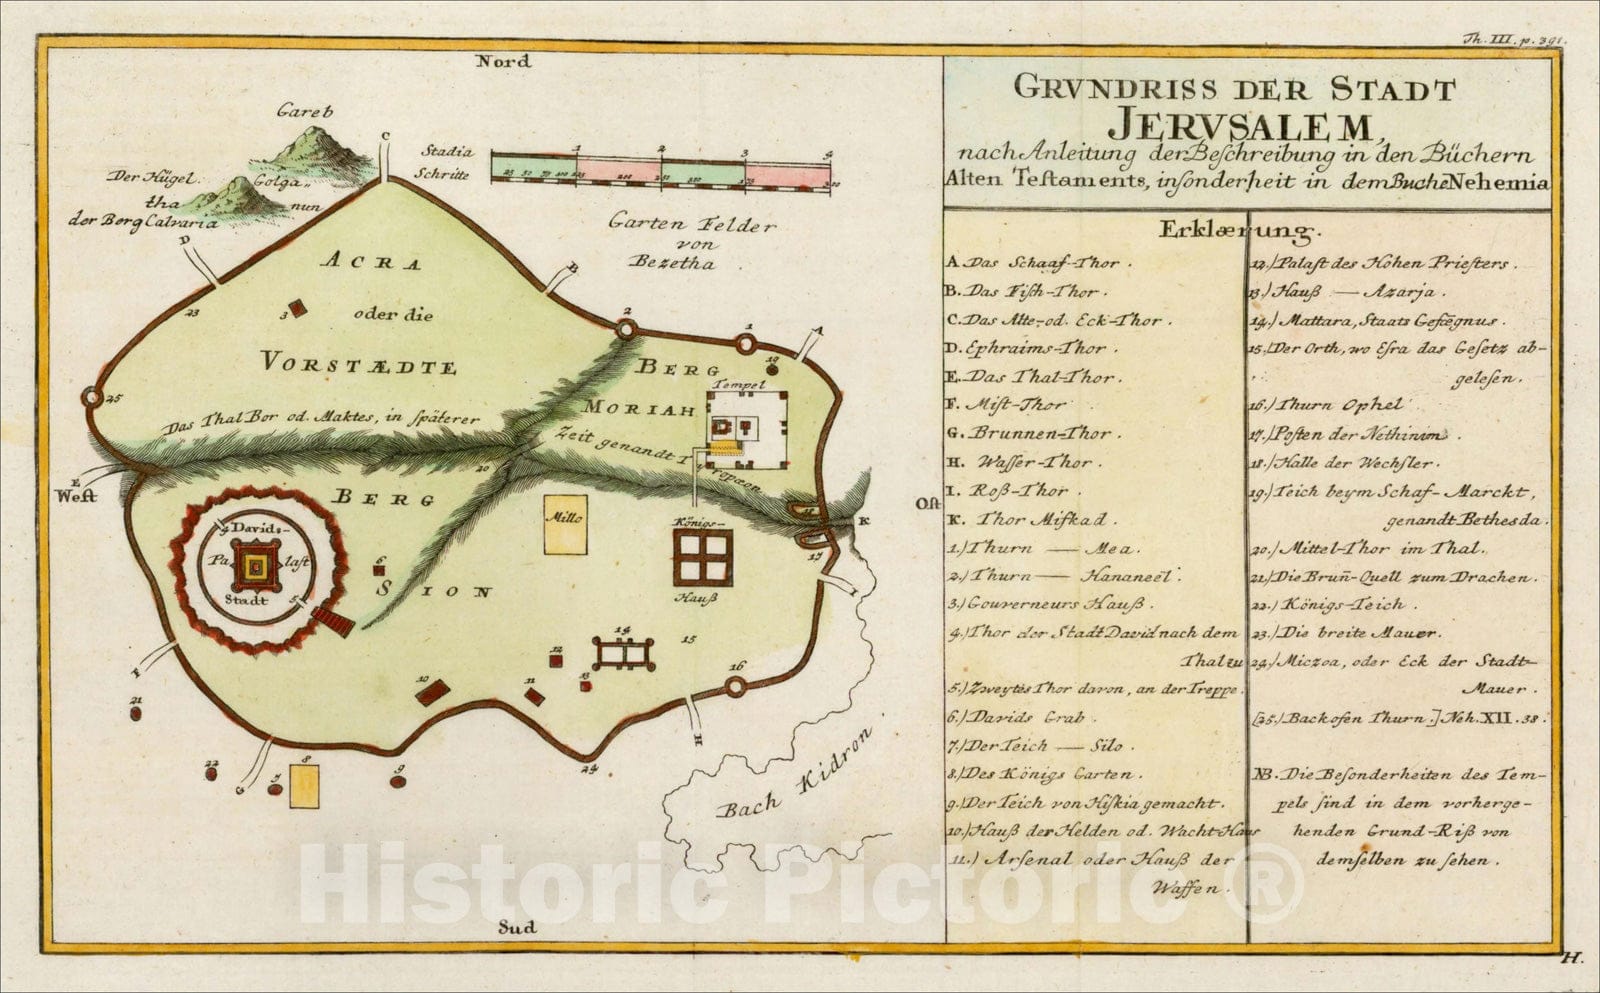 Th. III. p. 391.
Nord
Gareb
C
Stadia 1 2 3 4
Schritte 25 50 75 100 125 200 250 300 375 500
Der Hügel Golga-
tha nun
der Berg Calvaria
Garten Felder
von
Bezetha
D
B
ACRA
3
oder die
23
VORSTÆDTE
2
1
A
19
BERG
MORIAH
Tempel
25
Das Thal Bor od. Maktes, in ſpäterer
Zeit genandt Tyropæon
20
E
Weſt
Oſt
BERG
SION
4
Davids-
Pa laſt
Stadt
5
6
Millo
Königs-
Hauß
18
K
17
I
14
15
12
13
11
10
16
F
21
22
G
7
8
9
24
H
Bach Kidron
Sud
GRVNDRISS DER STADT
JERVSALEM,
nach Anleitung der Beſchreibung in den Büchern
Alten Teſtaments, inſonderheit in dem Buche Nehemia
Erklærung.
A. Das Schaaf-Thor.
B. Das Fiſch-Thor.
C. Das Alte-od. Eck-Thor.
D. Ephraims-Thor.
E. Das Thal-Thor.
F. Miſt-Thor
G. Brunnen-Thor.
H. Waſſer-Thor.
I. Roß-Thor.
K. Thor Mifkad.
1.) Thurn — Mea.
2.) Thurn — Hananeel.
3.) Gouverneurs Hauß.
4.) Thor der Stadt David nach dem
Thal zu
5.) Zweytes Thor davon, an der Treppe.
6.) Davids Grab.
7.) Der Teich — Silo.
8.) Des Königs Garten.
9.) Der Teich von Hiſkia gemacht.
10.) Hauß der Helden od. Wacht-Haus
11.) Arſenal oder Hauß der
Waffen.
12.) Palaſt des Hohen Prieſters.
13.) Hauß — Azarja.
14.) Mattara, Staats Gefægnus.
15. Der Orth, wo Eſra das Geſetz ab-
geleſen.
16.) Thurn Ophel
17.) Poſten der Nethinim.
18.) Halle der Wechſler.
19.) Teich beym Schaf-Marckt,
genandt Bethesda.
20.) Mittel-Thor im Thal.
21.) Die Brun̄-Quell zum Drachen.
22.) Königs-Teich.
23.) Die breite Mauer.
24.) Miczoa, oder Eck der Stadt-
Mauer.
[25.) Backofen Thurn.] Neh. XII. 38.
NB. Die Beſonderheiten des Tem-
pels ſind in dem vorherge-
henden Grund-Riß von
demſelben zu ſehen.
H.
Historic Pictoric ®